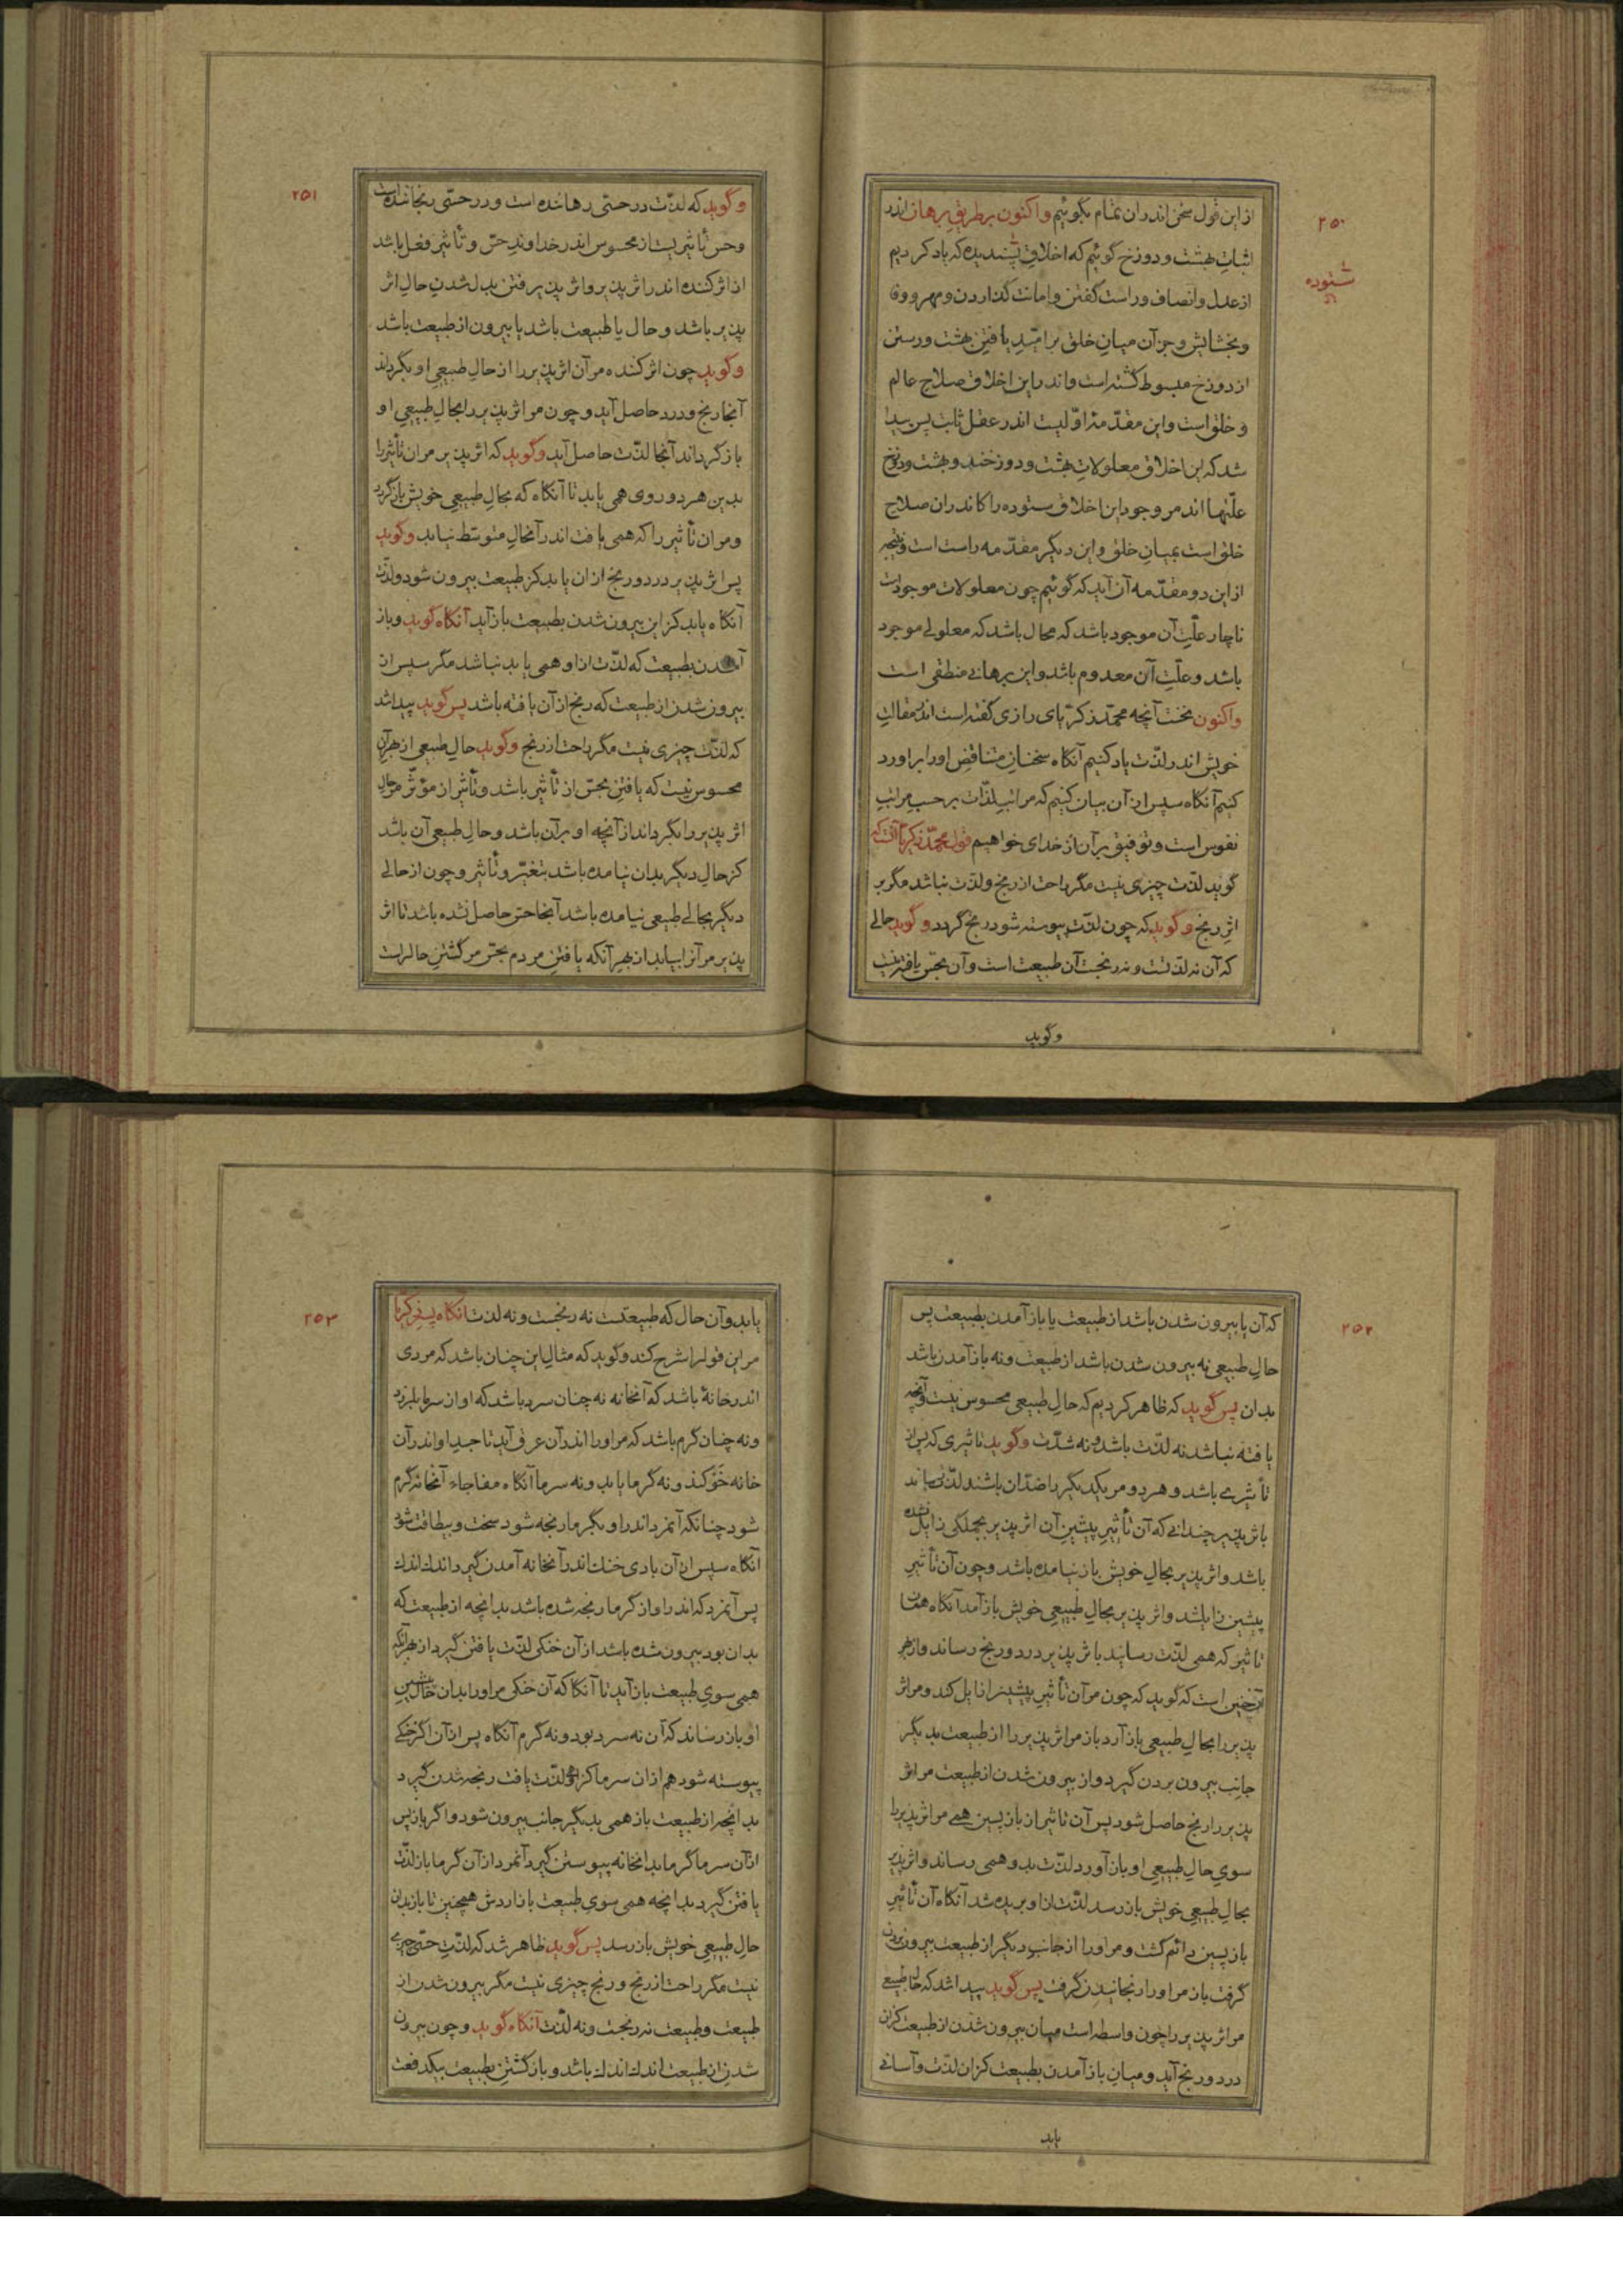 ۲۵۰
ستوده
از این قول سخن اندران تمام بگوئیم واکنون بر طریق برهان اندر
اثبات بهشت و دوزخ گوئیم که اخلاق پسندیده که یاد کردیم
از عدل و انصاف و راست گفتن و امانت گذاردن و مهر و وفا
و بخشایش و جز آن میان خلق بر امید یافتن بهشت و رستن
از دوزخ مبسوط گشته است و اندر این اخلاق صلاح عالم
و خلق است و این مقدّمهٔ اوّلیست اندر عقل ثابت پس پیدا
شد که این اخلاق معلولات بهشت و دوزخند و بهشت و دوزخ
علّتها اند مر وجود این اخلاق ستوده را کاندران صلاح
خلق است بمیان خلق و این دیگر مقدّمه راست است و نتیجه
از این دو مقدّمه آن آید که گوئیم چون معلولات موجود است
ناچار علّتِ آن موجود باشد که محال باشد که معلولی موجود
باشد و علّتِ آن معدوم باشد و این برهانی منطقی است
واکنون نخست آنچه محمّد زکریّای رازی گفته است اندر مقالت
خویش اندر لذّت یاد کنیم آنگاه سخنانِ متناقضِ او را بر او رد
کنیم آنگاه سپس از آن بیان کنیم که مراتبِ لذّات بر حسبِ مراتبِ
نفوس است و توفیق بر آن از خدای خواهیم قول محمّد زکریّا آنست که
گوید لذّت چیزی نیست مگر راحت از رنج و لذّت نباشد مگر بر
اثرِ رنج و گوید که چون لذّت پیوسته شود رنج گردد و گوید حالی
که آن نه لذّتست و نه رنجست آن طبیعت است و آن بحسّ یافته نیست
وگوید
۲۵۱
و گوید که لذّت در حسّی رهاننده است و درد حسّی رنجاننده است
و حسّ تأثیریست از محسوس اندر خداوندِ حسّ و تأثیر فعل باشد
از اثر کننده اندر اثر پذیر و اثر پذیرفتن بدل شدن حالِ اثر
پذیر باشد و حال یا طبیعت باشد یا بیرون از طبیعت باشد
و گوید چون اثر کننده مر آن اثر پذیر را از حال طبیعی او بگرداند
آنجا رنج و درد حاصل آید و چون مر اثر پذیر را بحالِ طبیعی او
باز گرداند آنجا لذّت حاصل آید و گوید که اثر پذیر مر ان تأثیر را
بدین هر دو روی همی یابد تا آنگاه که بحالِ طبیعی خویش باز گردد
و مر ان تأثیر را که همی یافت اندر آنحالِ متوسّط نیابد و گوید
پس اثر پذیر درد و رنج از ان یابد کز طبیعت بیرون شود و لذّت
آنگاه یابد کز این بیرون شدن بطبیعت باز آید آنگاه گوید و باز
آمدن بطبیعت که لذّت از او همی یابد نباشد مگر سپس از
بیرون شدن از طبیعت که رنج از آن یافته باشد پس گوید پیدا شد
که لذّت چیزی نیست مگر راحت از رنج و گوید حالِ طبیعی از بهر آن
محسوس نیست که یافتنِ بحسّ از تأثیر باشد و تأثیر از مؤثّر مر حالِ
اثر پذیر را بگرداند از آنچه او بر آن باشد و حال طبیعی آن باشد
کز حال دیگر بدان نیامده باشد بتغیّر و تأثیر و چون از حالی
دیگر بحالی طبیعی نیامده باشد آنجا حسّ حاصل نشده باشد تا اثر
پذیر مر آنرا بیابد از بهر آنکه یافتن مردم بحسّ مر گشتنِ حال راست
۲۵۲
که آن یا بیرون شدن باشد از طبیعت یا باز آمدن بطبیعت پس
حالِ طبیعی نه بیرون شدن باشد از طبیعت و نه باز آمدن باشد
بدان پس گوید که ظاهر کردیم که حالِ طبیعی محسوس نیست و آنچه
یافته نباشد نه لذّت باشد و نه شدّت و گوید تاثیری که پس از
تأثیری باشد و هر دو مر یکدیگر را ضدّان باشند لذّت رساند
باثر پذیر چندانی که آن تأثیرِ پیشین آن اثر پذیر بجملگی زایل نشده
باشد و اثر پذیر بحالِ خویش باز نیامده باشد و چون آن تأثیر
پیشین زایل شد و اثر پذیر بحالِ طبیعی خویش باز آمد آنگاه همان
تاثیر که همی لذّت رسانید باثر پذیر درد و رنج رساند و از بهر
آن چنین است که گوید که چون مر آن تأثیرِ پیشین را زایل کند و مر اثر
پذیر را بحال طبیعی باز آرد باز مر اثر پذیر را از طبیعت بدیگر
جانب بیرون بردن گیرد و از بیرون شدن از طبیعت مر اثر
پذیر را رنج حاصل شود پس آن تاثیر از باز پسین همی مر اثر پذیر را
سویِ حال طبیعی او باز آورد لذّت بدو همی رساند و اثر پذیر
بحالِ طبیعی خویش باز رسد لذّت از او بریده شد آنگاه آن تأثیر
باز پسین دائم گشت و مر او را از جانب دیگر از طبیعت بیرون بردن
گرفت باز مر او را رنجانیدن گرفت پس گوید پیدا شد که حال طبیعی
مر اثر پذیر را چون واسطه است میان بیرون شدن از طبیعت کزان
درد و رنج آید و میان باز آمدن بطبیعت کزان لذّت و آسانی
یابد
۲۵۳
یابد و آن حال که طبیعتست نه رنجست و نه لذّت آنگاه پسر زکریّا
مر این قول را شرح کند و گوید که مثال این چنان باشد که مردی
اندر خانهٔ باشد که آنخانه نه چنان سرد باشد که او از سرما بلرزد
و نه چنان گرم باشد که مر او را اندر آن عرق آید تا جسدِ او اندر آن
خانه خو کند و نه گرما یابد و نه سرما آنگاه مفاجاء آنخانه گرم
شود چنانکه آنمرد اندر او بگرما رنجه شود سخت و بیطاقت شود
آنگاه سپس از آن بادی خنک اندر آنخانه آمدن گیرد اندک اندک
پس آنمرد که اندر او از گرما رنجه شده باشد بدانچه از طبیعت که
بدان بود بیرون شده باشد از آن خنکی لذّت یافتن گیرد از بهر آنکه
همی سوی طبیعت باز آید تا آنگاه که آن خنکی مر او را بدان حالِ پیشین
او باز رساند که آن نه سرد بود و نه گرم آنگاه پس از آن اگر خنکی
پیوسته شود هم از ان سرما کز او لذّت یافت رنجه شدن گیرد
بدانچه از طبیعت باز همی بدیگر جانب بیرون شود و اگر باز پس
از آن سرما گرما بدانخانه پیوستن گیرد آنمرد از آن گرما باز لذّت
یافتن گیرد بدانچه همی سوی طبیعت باز اردش همچنین تا باز بدان
حالِ طبیعی خویش باز رسد پس گوید ظاهر شد که لذّتِ حسّی چیزی
نیست مگر راحت از رنج و رنج چیزی نیست مگر بیرون شدن از
طبیعت و طبیعت نه رنجست و نه لذّت آنگاه گوید و چون بیرون
شدن از طبیعت اندک اندک باشد و باز گشتن بطبیعت بیکدفعت